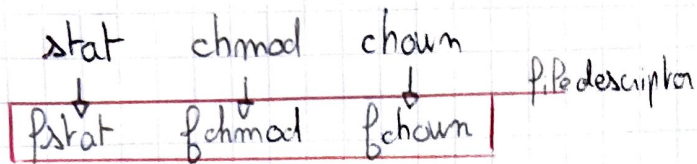 stat chmod chown
file descriptor
fstat fchmod fchown